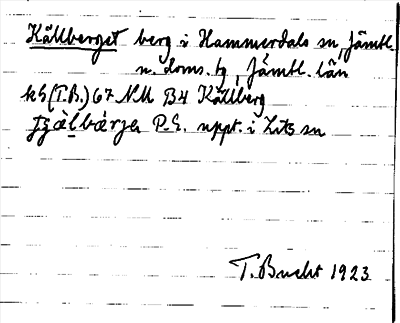 Källberget berg i Hammerdals sn, Jämtl.
n. doms. tg, Jämtl. län
kS (T.B.) 67 NM B4 Källberg
P.E. uppt. i Lits sn
T. Bucht 1923